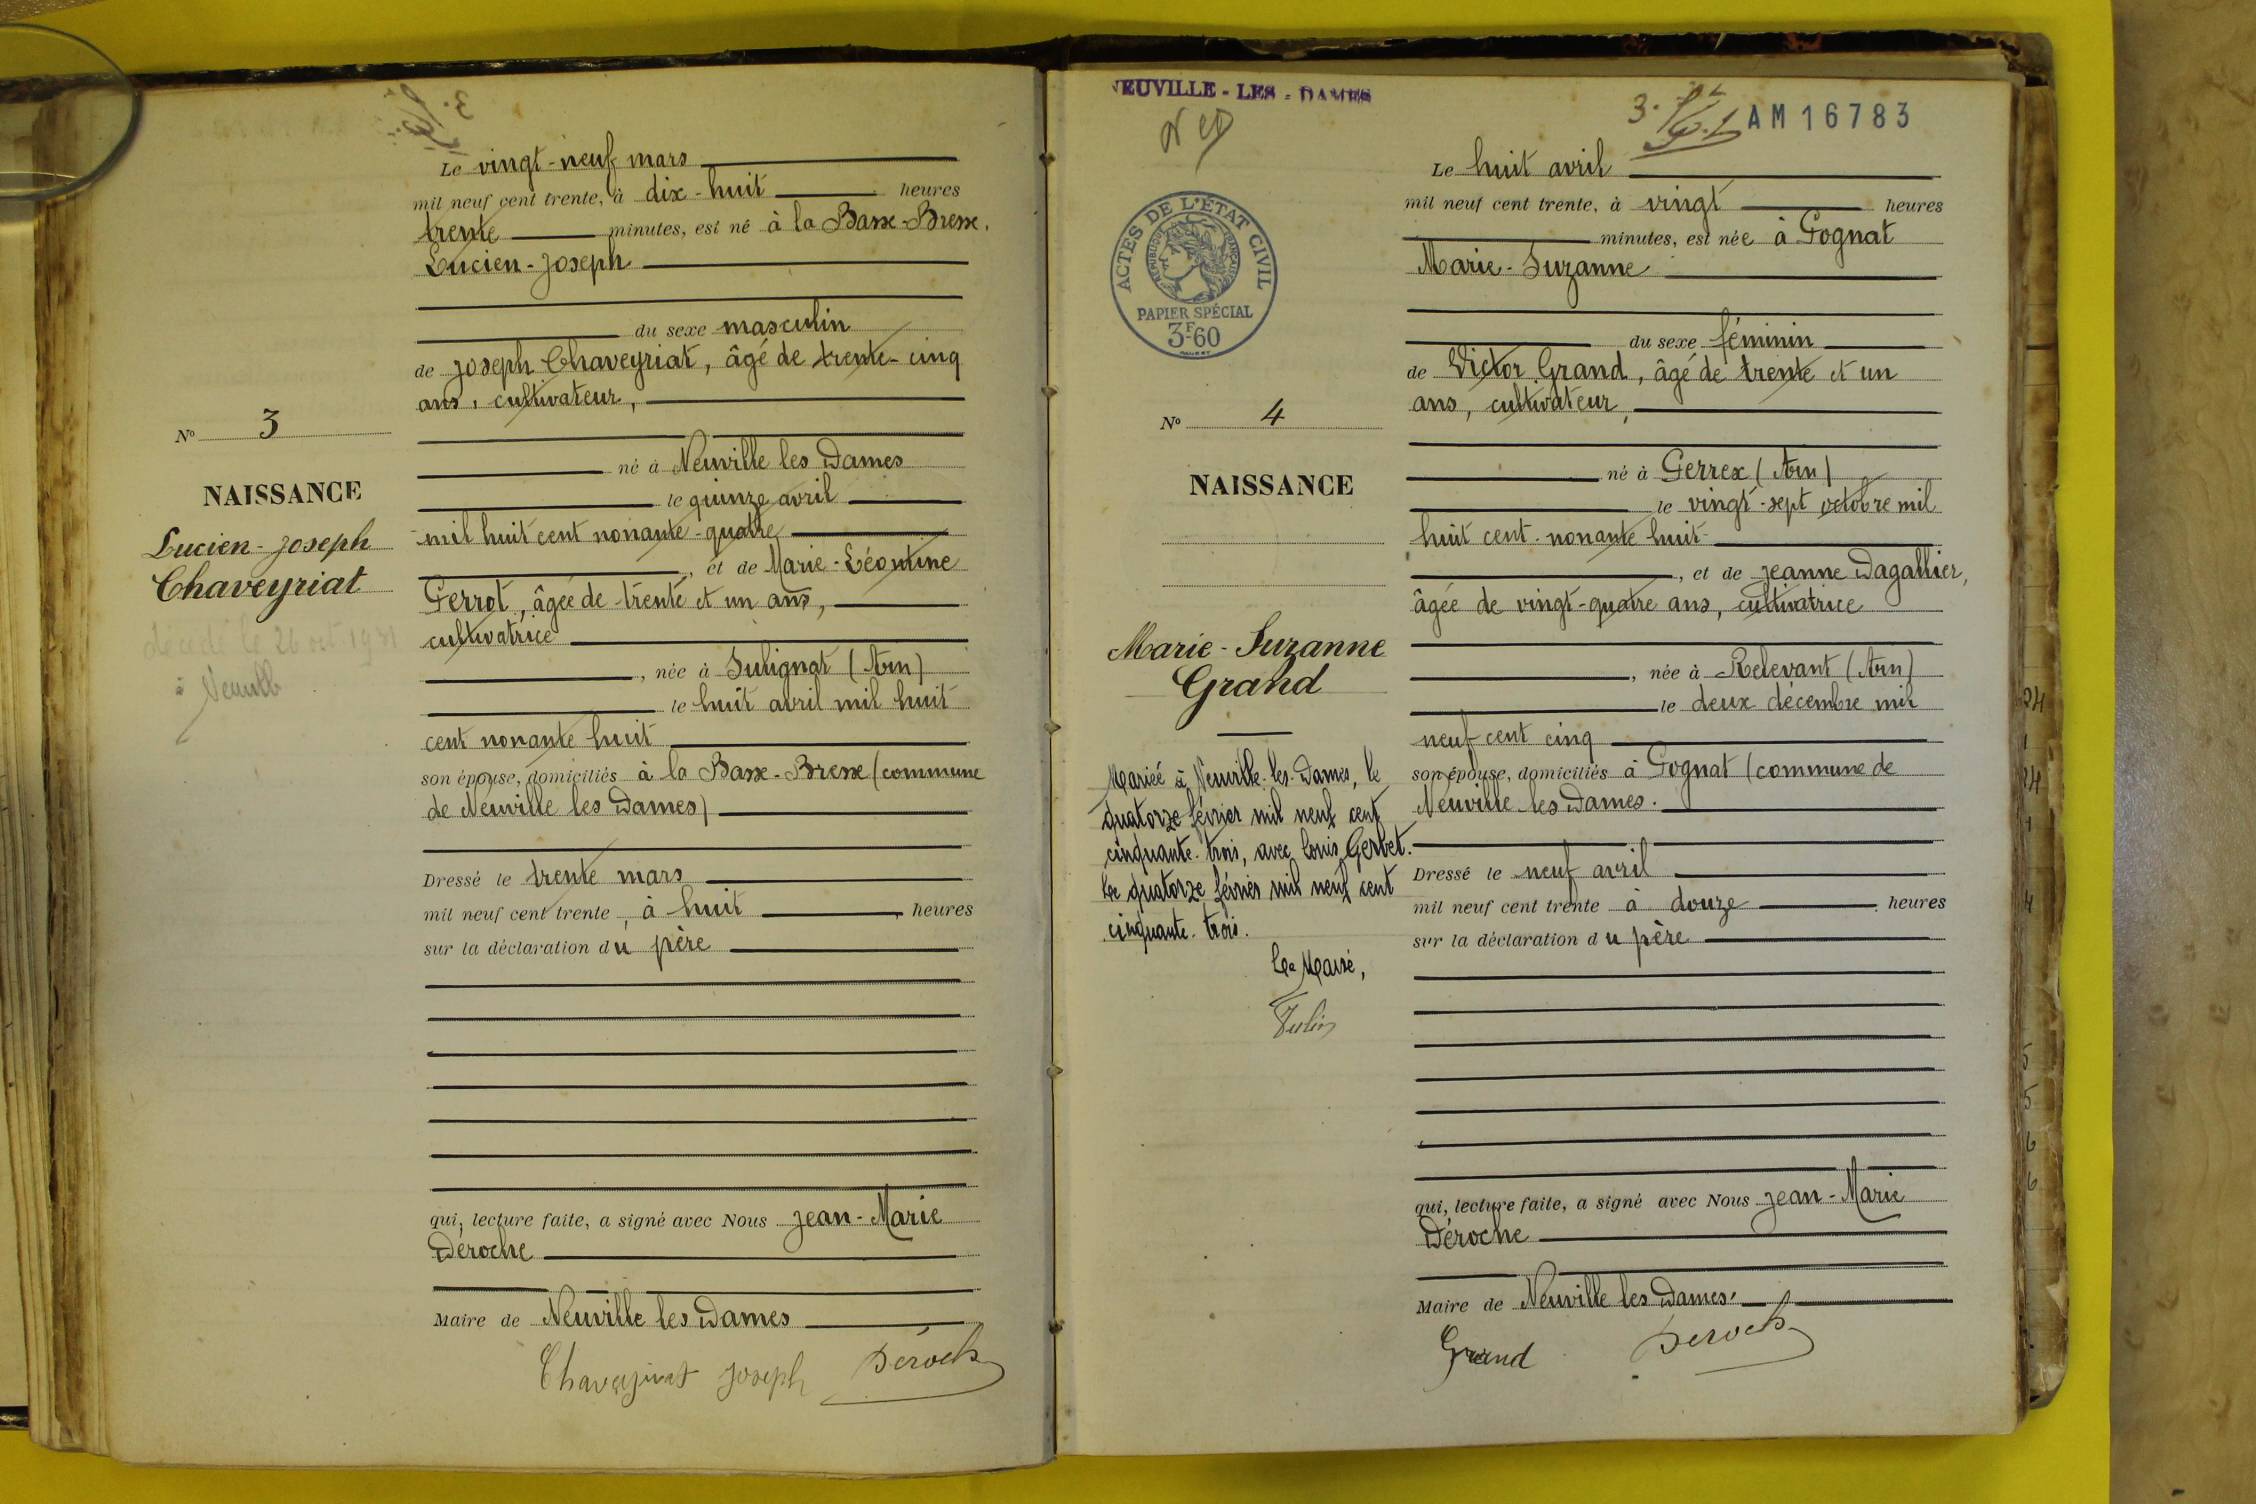 Le vingt-neuf mars
mil neuf cent trente, à dix-huit heures
trente minutes, est né à la Basse-Bresse.
Lucien-Joseph
du sexe masculin
de Joseph Chaveyriat, âgé de trente-cinq
ans, cultivateur,
né à Neuville les Dames
le quinze avril
mil huit cent nonante-quatre
, et de Marie-Léontine
Perrot, âgée de trente et un ans,
cultivatrice
, née à Sulignat (Ain)
le huit avril mil huit
cent nonante huit
son épouse, domiciliés à la Basse-Bresse (commune
de Neuville les Dames)
Dressé le trente mars
mil neuf cent trente, à huit heures
sur la déclaration du père
qui, lecture faite, a signé avec Nous Jean-Marie
Déroche
Maire de Neuville les Dames
Chaveyriat Joseph Déroche
No 3
NAISSANCE
Lucien-Joseph
Chaveyriat
décédé le 26 oct 1931
à Neuville
NEUVILLE-LES-DAMES
AM16783
ACTES DE L'ÉTAT CIVIL
RÉPUBLIQUE FRANÇAISE
PAPIER SPÉCIAL
3F60
No 4
NAISSANCE
Marie-Suzanne
Grand
Mariée à Neuville-les-Dames, le
quatorze février mil neuf cent
cinquante-trois, avec Louis Gerbet.
Le quatorze février mil neuf cent
cinquante-trois.
Le Maire,
Le huit avril
mil neuf cent trente, à vingt heures
minutes, est née à Pognat
Marie-Suzanne
du sexe féminin
de Victor Grand, âgé de trente et un
ans, cultivateur,
né à Perrex (Ain)
le vingt-sept octobre mil
huit cent nonante huit
, et de Jeanne Dagallier,
âgée de vingt-quatre ans, cultivatrice
, née à Relevant (Ain)
le deux décembre mil
neuf cent cinq
son épouse, domiciliés à Pognat (commune de
Neuville les Dames.
Dressé le neuf avril
mil neuf cent trente à douze heures
sur la déclaration du père
qui, lecture faite, a signé avec Nous Jean-Marie
Déroche
Maire de Neuville les Dames.
Grand Déroche